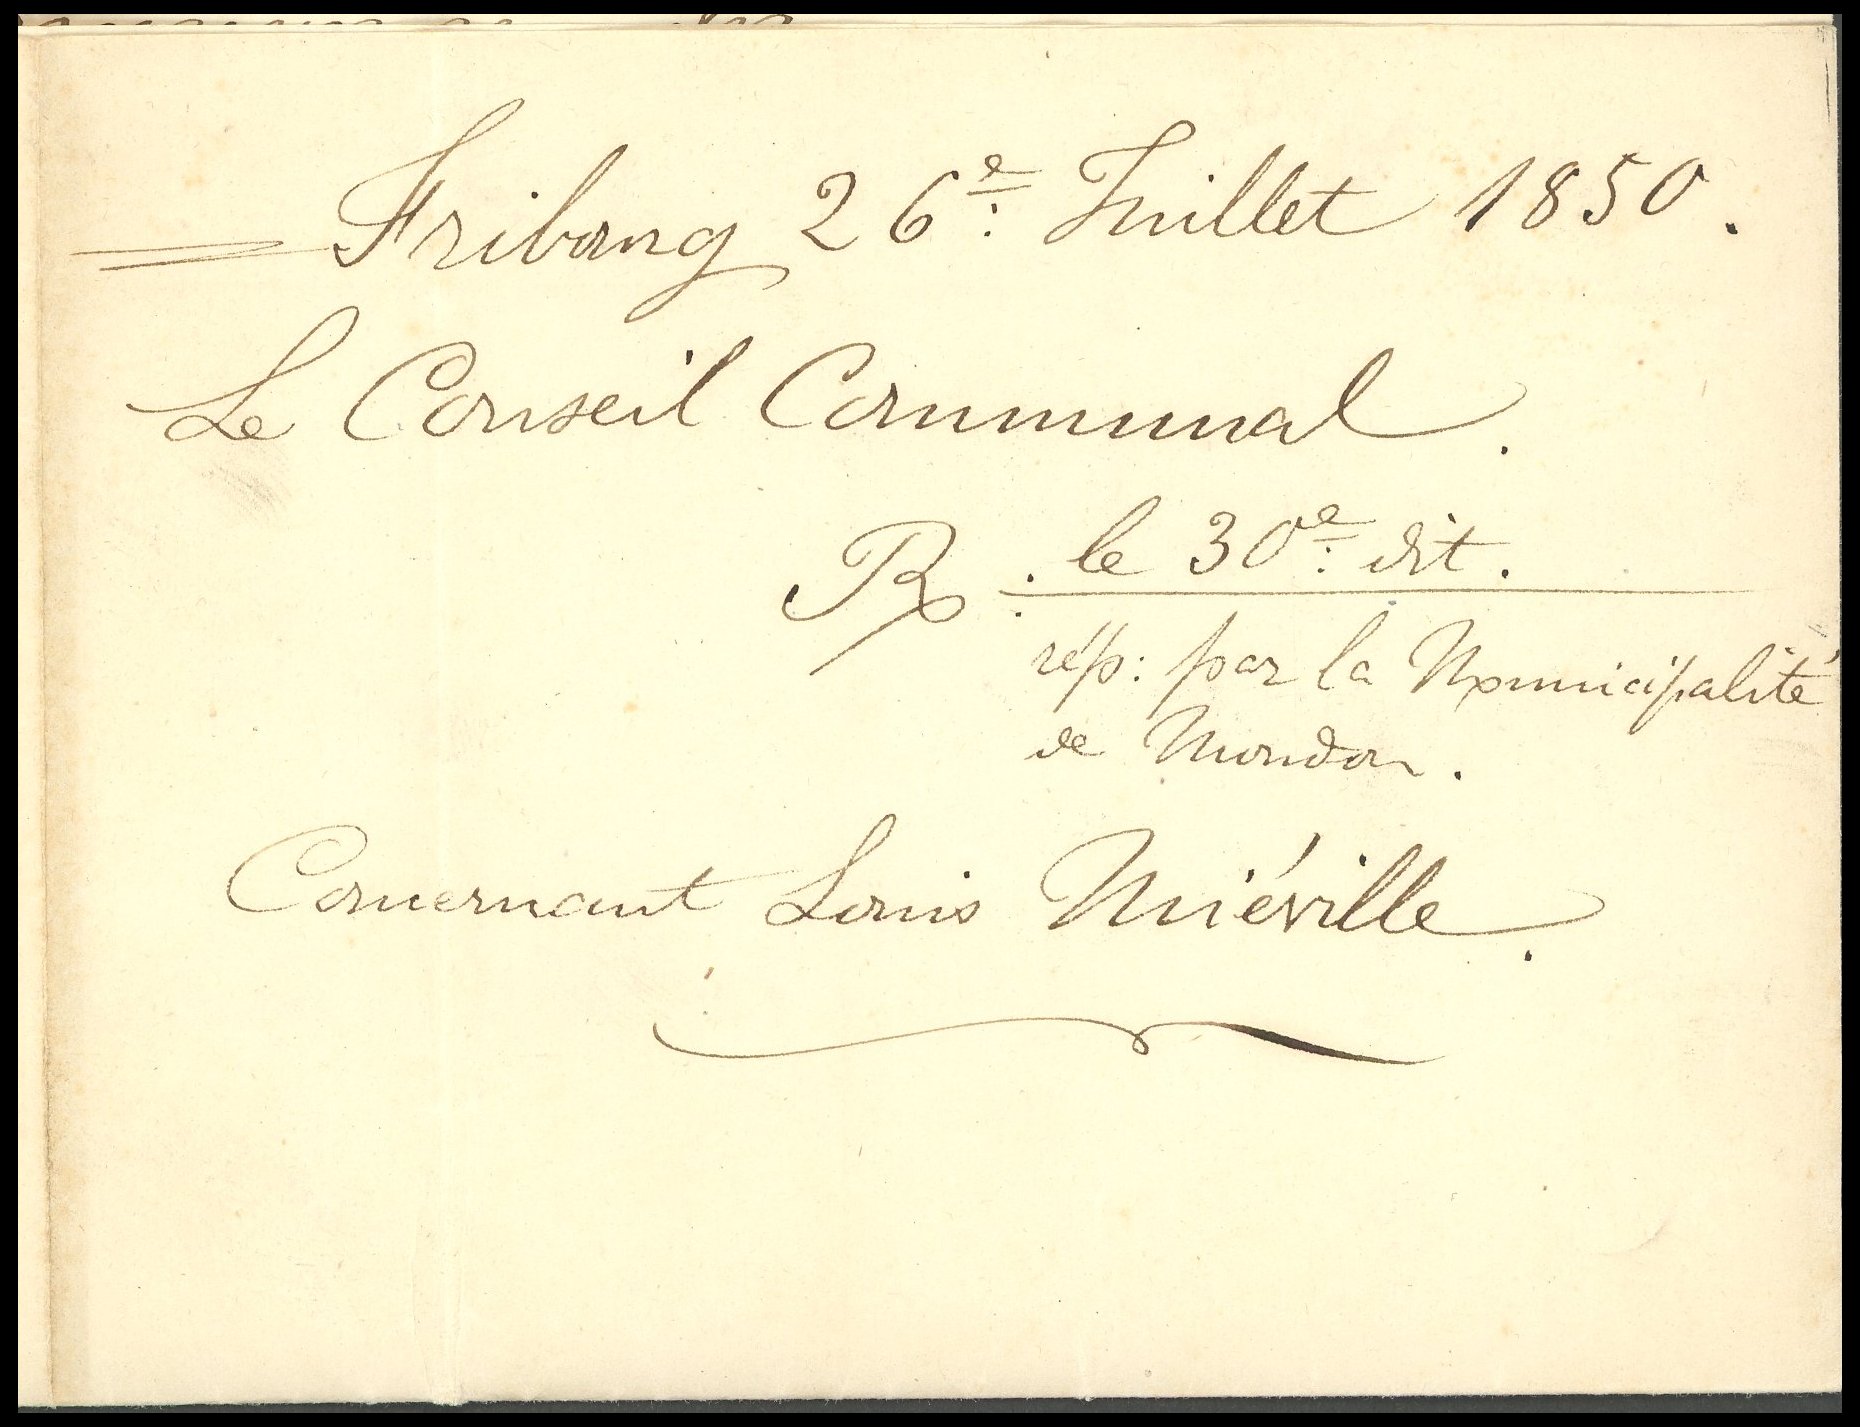 Fribourg 26e: Juillet 1850.
Le Conseil Communal.
R. le 30e: dit.
rép: par la Municipalité
de Moudon.
Concernant Louis Miéville.